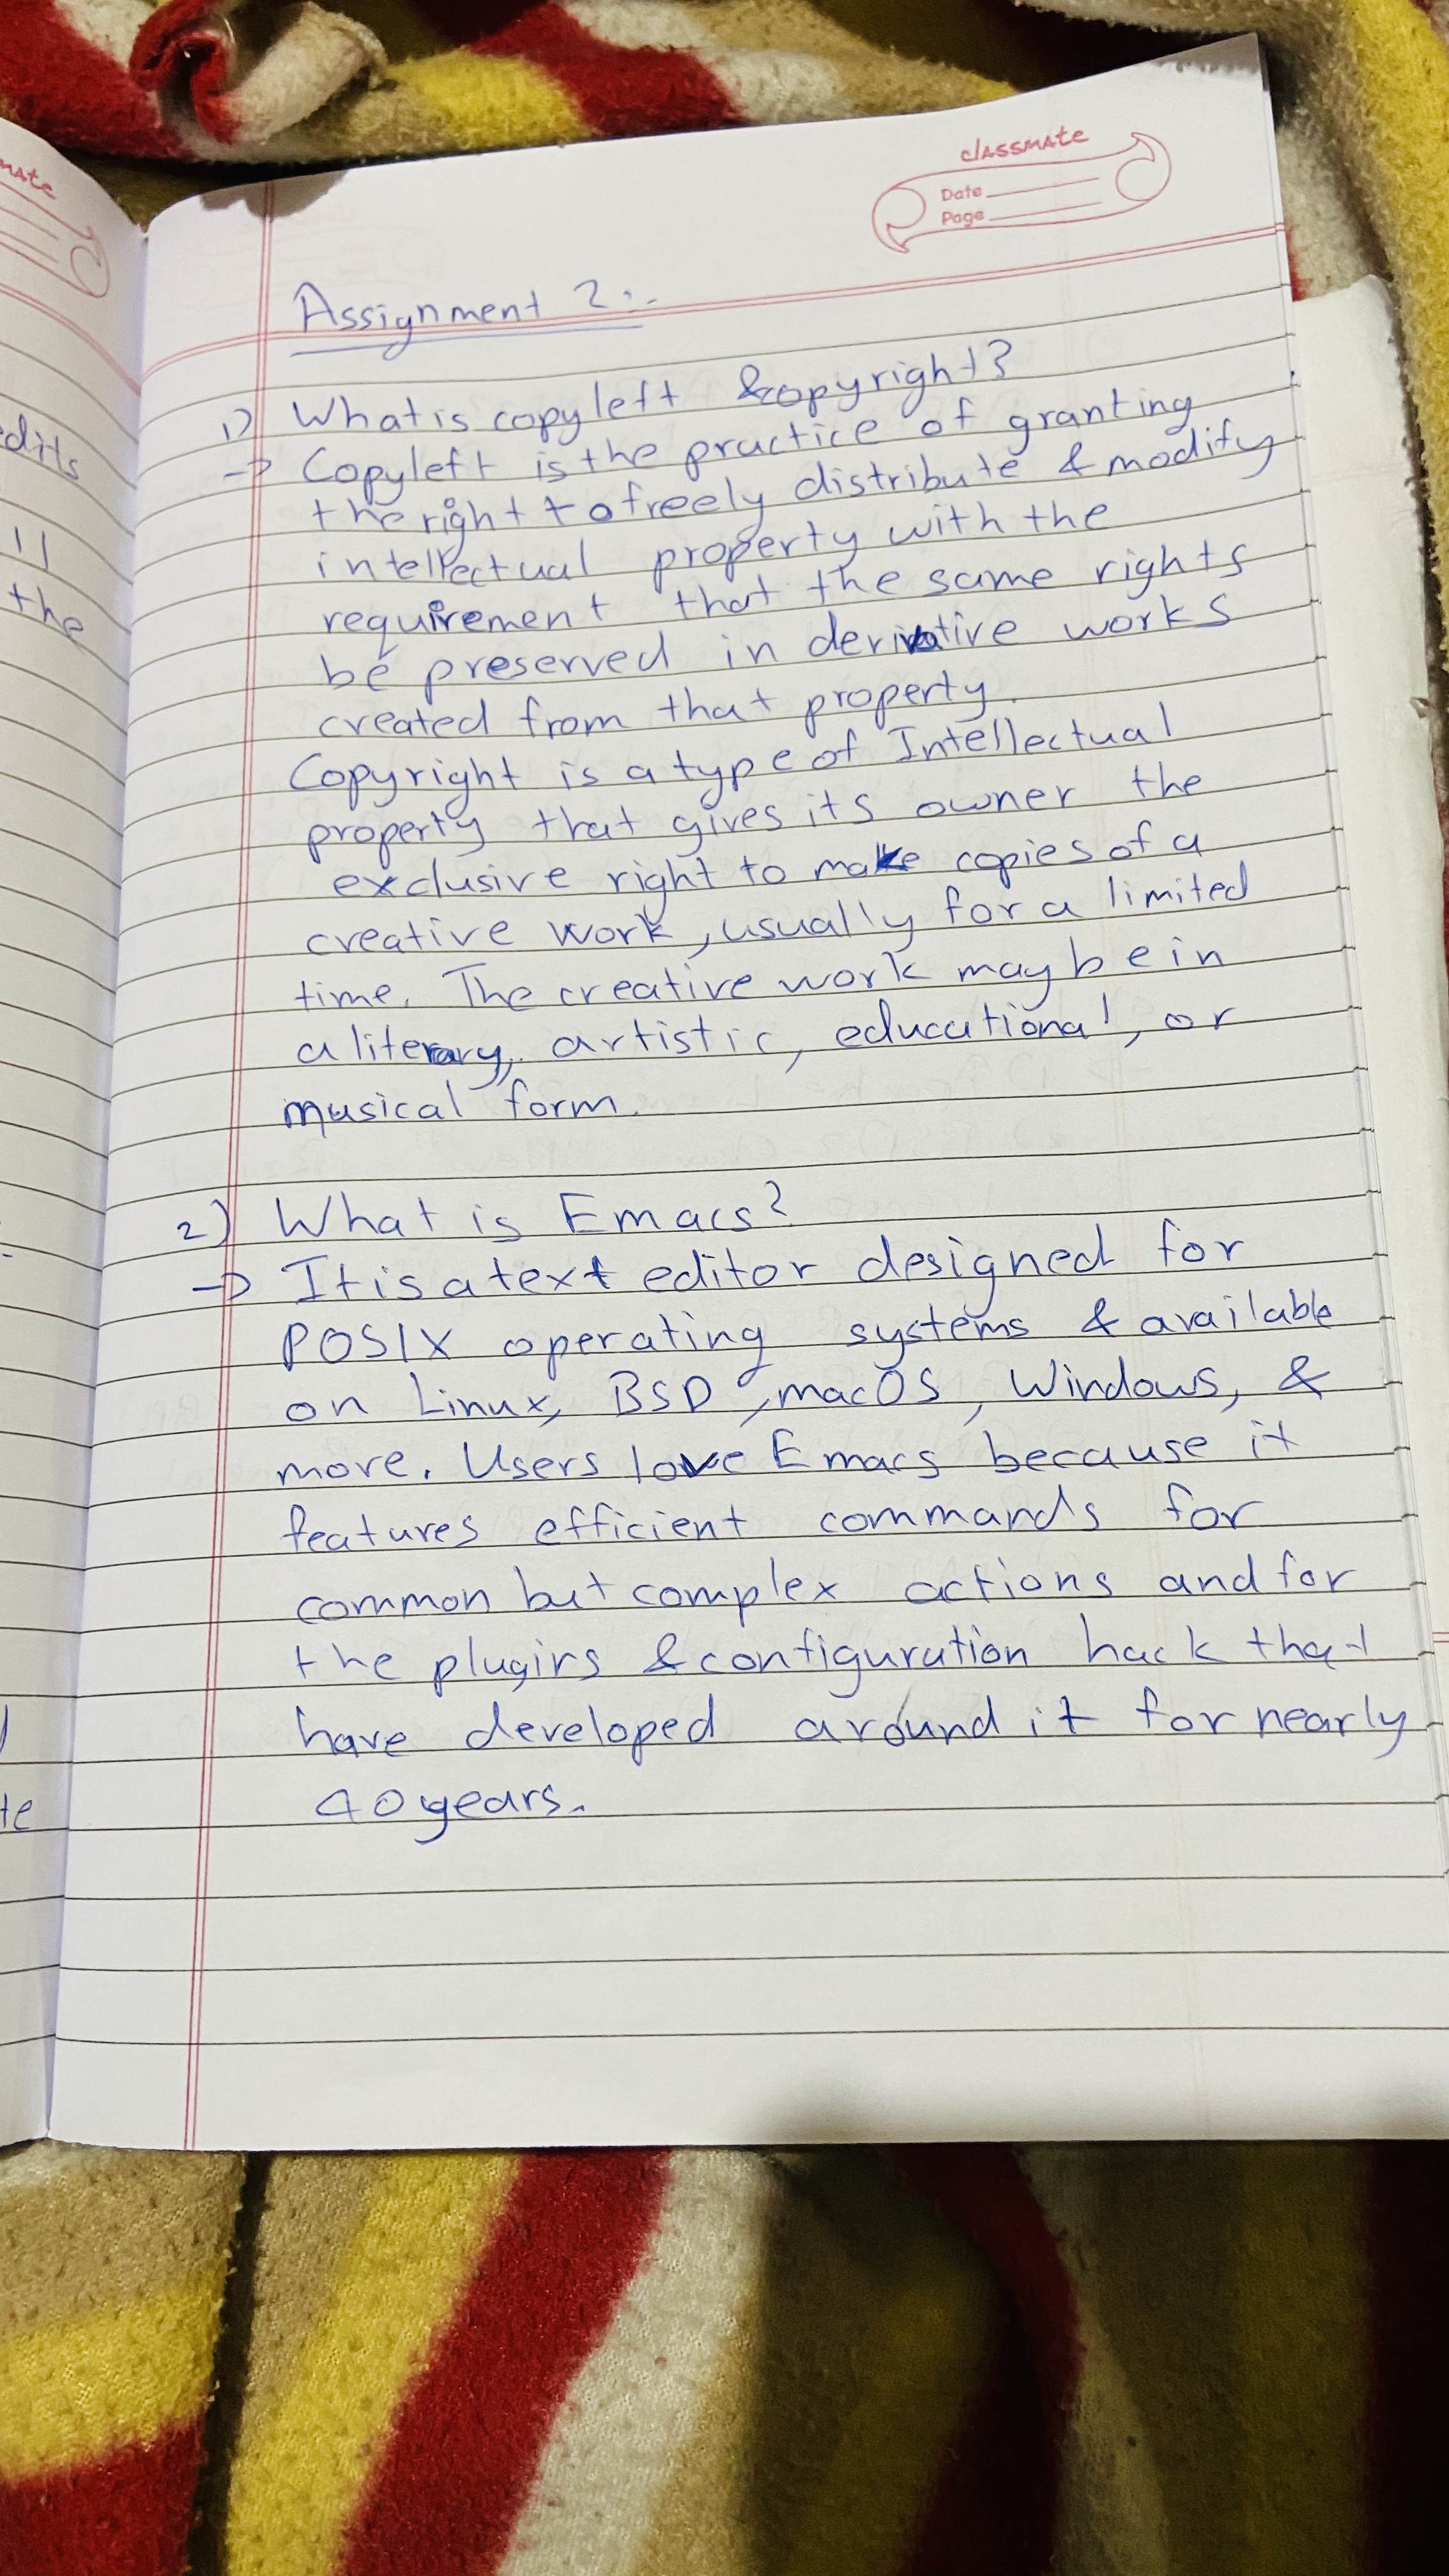 mate
edits
11
the
te
classmate
Date
Page
Assignment 2:-
1) What is copyleft & copyright?
→ Copyleft is the practice of granting
the right to freely distribute & modify
intellectual property with the
requirement that the same rights
be preserved in derivative works
created from that property.
Copyright is a type of Intellectual
property that gives its owner the
exclusive right to make copies of a
creative work, usually for a limited
time. The creative work may be in
a literary, artistic, educational, or
musical form.
2) What is Emacs?
→ It is a text editor designed for
POSIX operating systems & available
on Linux, BSD, macOS, Windows, &
more. Users love Emacs because it
features efficient commands for
common but complex actions and for
the plugins & configuration hack that
have developed around it for nearly
40 years.